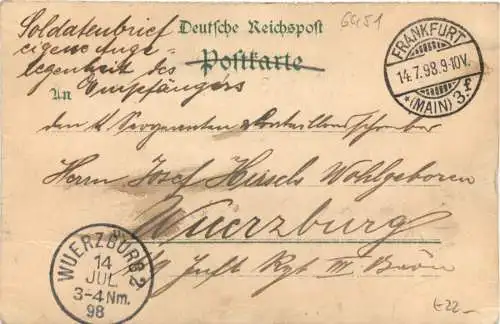 Soldatenbrief
eigene Ange-
legenheit des
Empfängers
Deutsche Reichspost
Postkarte
6451
FRANKFURT
14.7.98.9-10V.
*(MAIN) 3.f
An
den k Sergeanten & Bataillonsschreiber
Herrn Josef Hirsch Wohlgeboren
Wuerzburg
Inft Rgt III
WUERZBURG 2.
14
JUL
3-4 Nm.
98
t-22-